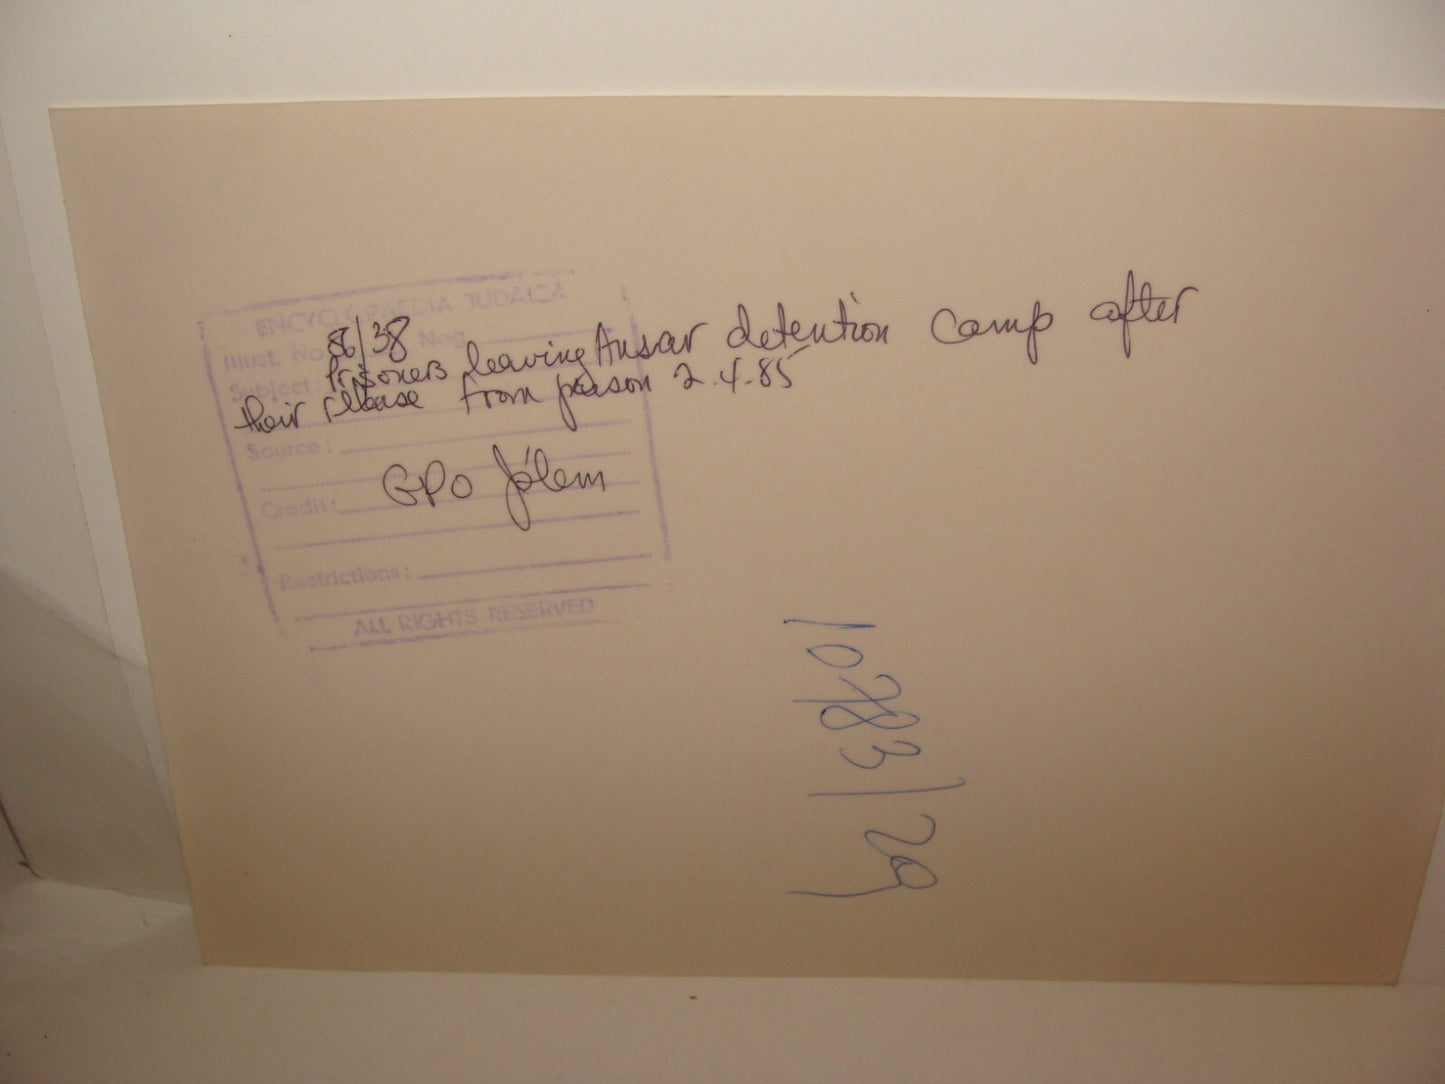 ENCYCLOPAEDIA JUDAICA
Illust. No. 86/38 Neg.
Subject: Prisoners leaving Ansar detention camp after
their release from prison 2.4.85
Source:
GPO J'lem
Credit:
Restrictions:
ALL RIGHTS RESERVED
10783/29